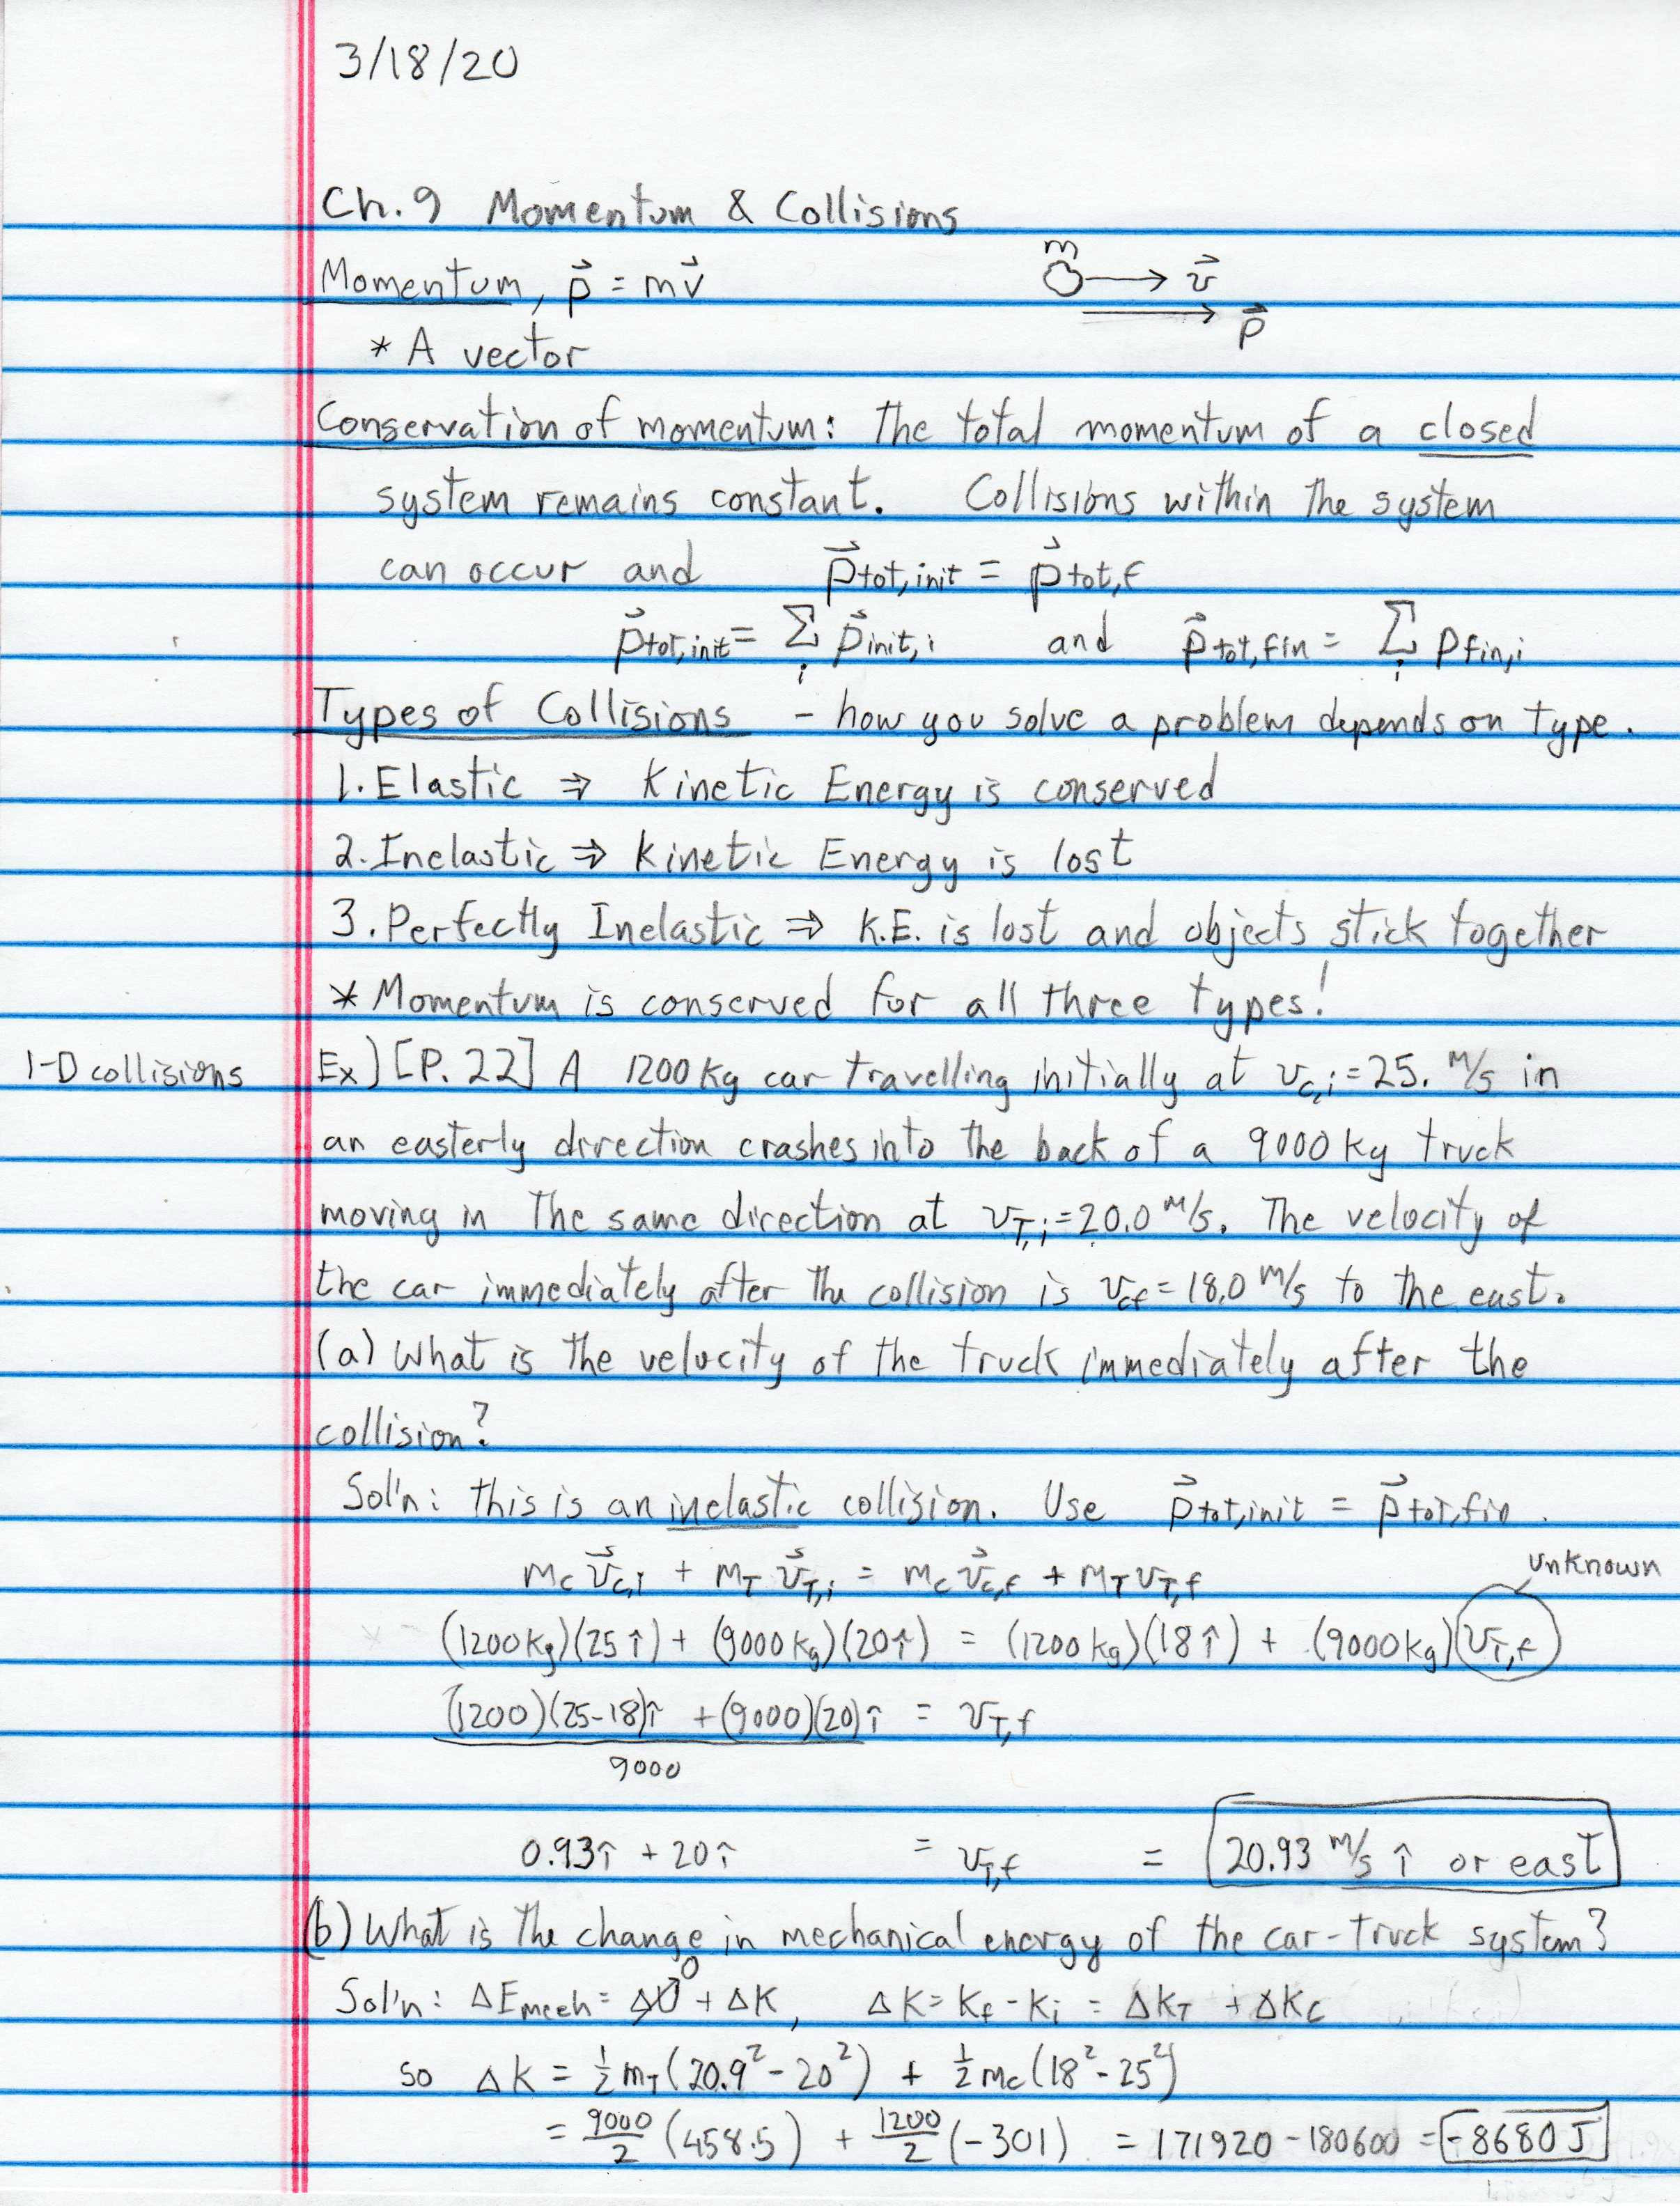 3/18/20
Ch. 9 Momentum & Collisions
Momentum, p⃗ = mv⃗
m
v⃗
p⃗
* A vector
Conservation of momentum: The total momentum of a closed
system remains constant. Collisions within the system
can occur and p⃗tot,init = p⃗tot,f
p⃗tot,init = Σi p⃗init,i and p⃗tot,fin = Σi pfin,i
Types of Collisions - how you solve a problem depends on type.
1. Elastic ⇒ Kinetic Energy is conserved
2. Inelastic ⇒ Kinetic Energy is lost
3. Perfectly Inelastic ⇒ K.E. is lost and objects stick together
* Momentum is conserved for all three types!
1-D collisions
Ex) [P. 22] A 1200 kg car travelling initially at vc,i = 25. m/s in
an easterly direction crashes into the back of a 9000 kg truck
moving in the same direction at vT,i = 20.0 m/s. The velocity of
the car immediately after the collision is vcf = 18.0 m/s to the east.
(a) What is the velocity of the truck immediately after the
collision?
Sol'n: this is an inelastic collision. Use p⃗tot,init = p⃗tot,fin.
mc v⃗c,i + mT v⃗T,i = mc v⃗c,f + mT vT,f
unknown
(1200 kg)(25 î) + (9000 kg)(20 î) = (1200 kg)(18 î) + (9000 kg)(vT,f)
(1200)(25-18)î + (9000)(20)î = vT,f
9000
0.93î + 20î = vT,f = 20.93 m/s î or east
(b) What is the change in mechanical energy of the car-truck system?
Sol'n: ΔEmech = ΔU⁰ + ΔK, ΔK = Kf - Ki = ΔKT + ΔKC
so ΔK = ½ mT (20.9² - 20²) + ½ mc (18² - 25²)
= 9000/2 (458.5) + 1200/2 (-301) = 171920 - 180600 = -8680 J